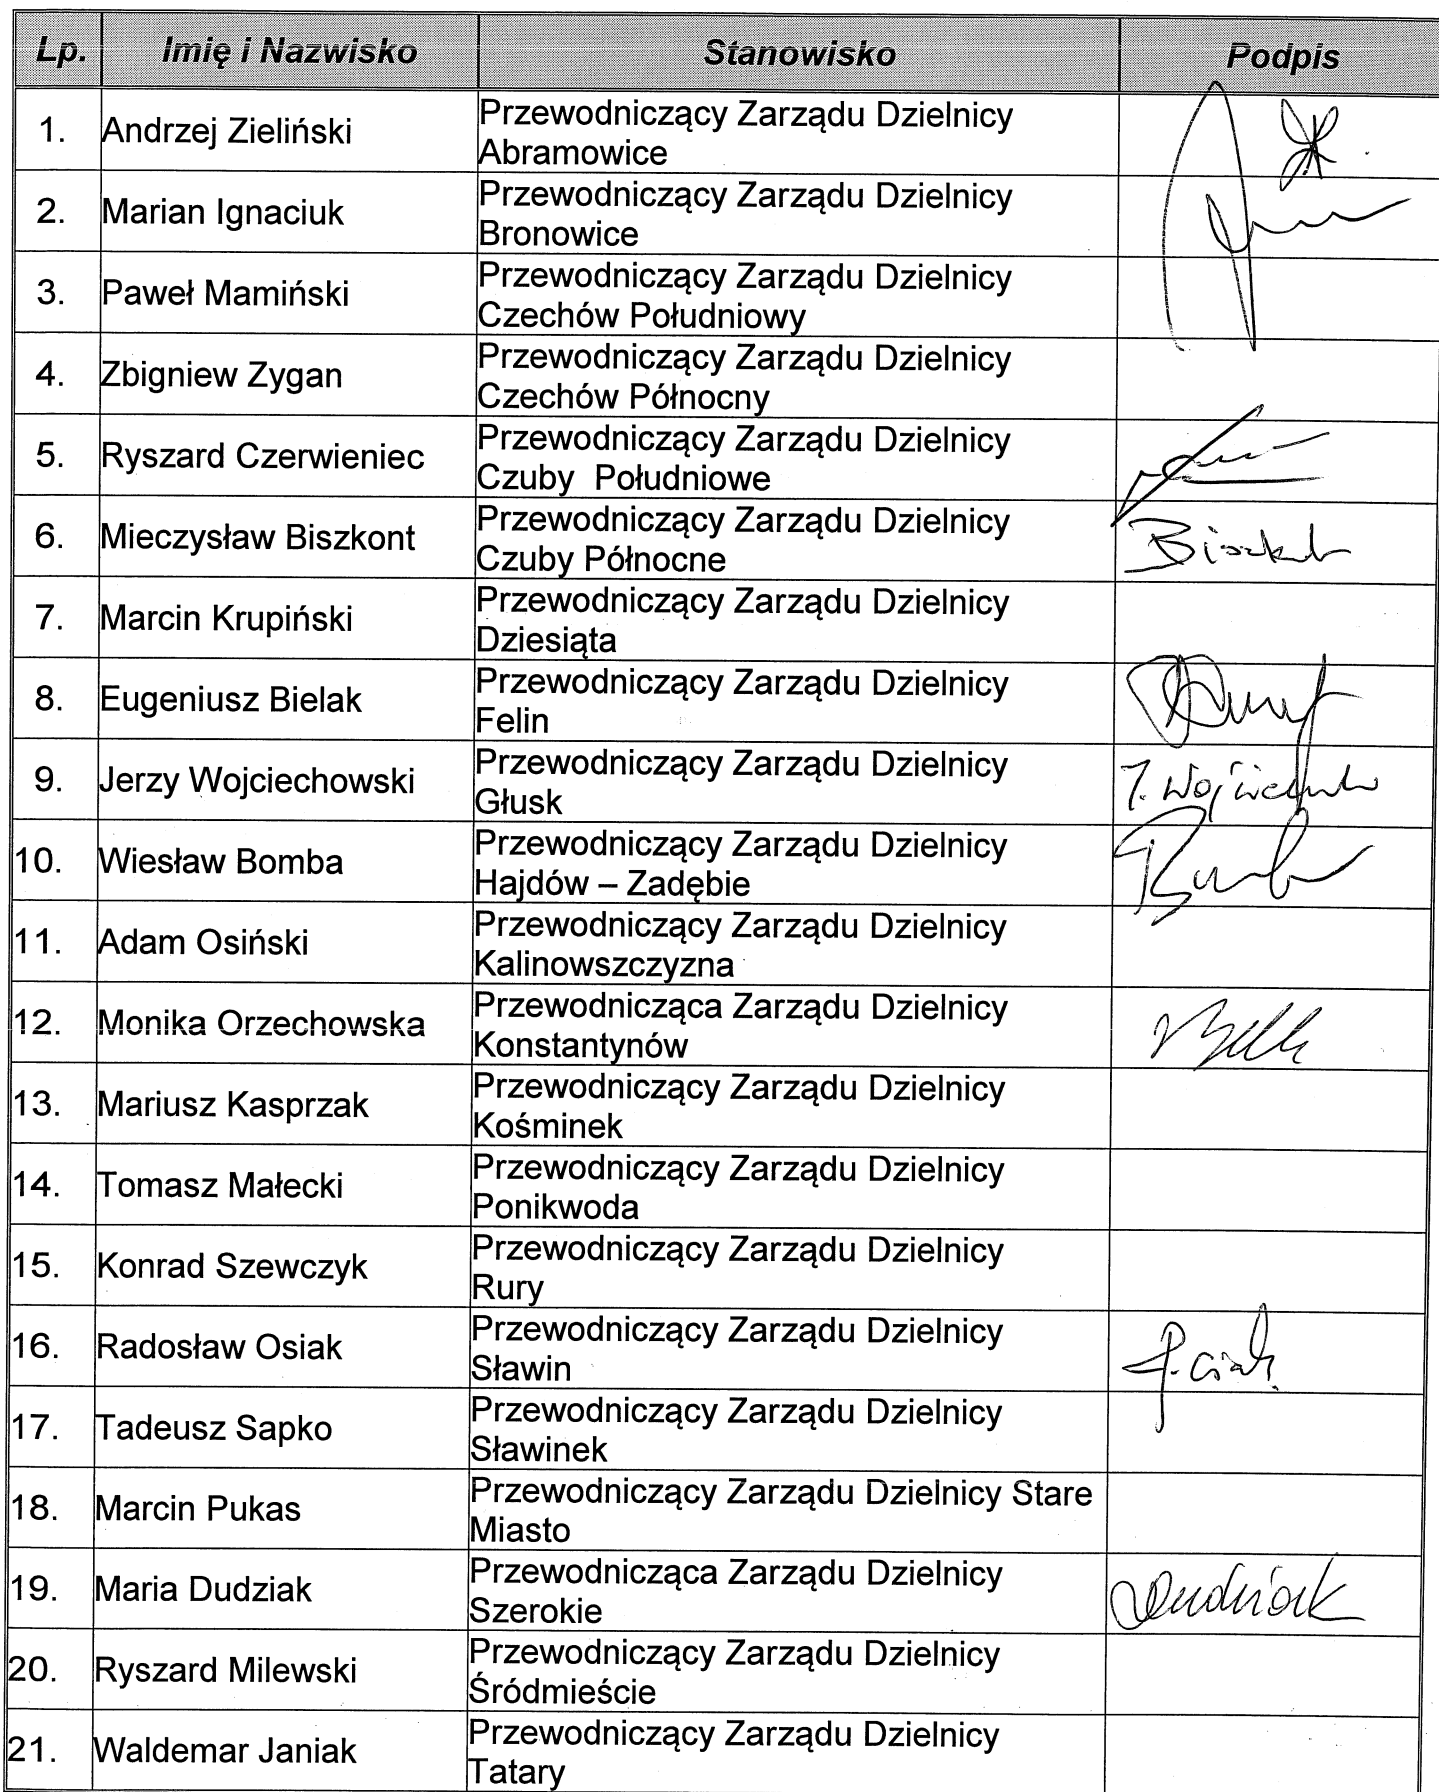 Lp. Imię i Nazwisko Stanowisko Podpis
1. Andrzej Zieliński Przewodniczący Zarządu Dzielnicy
Abramowice
2. Marian Ignaciuk Przewodniczący Zarządu Dzielnicy
Bronowice
3. Paweł Mamiński Przewodniczący Zarządu Dzielnicy
Czechów Południowy
4. Zbigniew Zygan Przewodniczący Zarządu Dzielnicy
Czechów Północny
5. Ryszard Czerwieniec Przewodniczący Zarządu Dzielnicy
Czuby Południowe
6. Mieczysław Biszkont Przewodniczący Zarządu Dzielnicy
Czuby Północne
7. Marcin Krupiński Przewodniczący Zarządu Dzielnicy
Dziesiąta
8. Eugeniusz Bielak Przewodniczący Zarządu Dzielnicy
Felin
9. Jerzy Wojciechowski Przewodniczący Zarządu Dzielnicy
Głusk
10. Wiesław Bomba Przewodniczący Zarządu Dzielnicy
Hajdów – Zadębie
11. Adam Osiński Przewodniczący Zarządu Dzielnicy
Kalinowszczyzna
12. Monika Orzechowska Przewodnicząca Zarządu Dzielnicy
Konstantynów
13. Mariusz Kasprzak Przewodniczący Zarządu Dzielnicy
Kośminek
14. Tomasz Małecki Przewodniczący Zarządu Dzielnicy
Ponikwoda
15. Konrad Szewczyk Przewodniczący Zarządu Dzielnicy
Rury
16. Radosław Osiak Przewodniczący Zarządu Dzielnicy
Sławin
17. Tadeusz Sapko Przewodniczący Zarządu Dzielnicy
Sławinek
18. Marcin Pukas Przewodniczący Zarządu Dzielnicy Stare
Miasto
19. Maria Dudziak Przewodnicząca Zarządu Dzielnicy Dudziak
Szerokie
20. Ryszard Milewski Przewodniczący Zarządu Dzielnicy
Śródmieście
21. Waldemar Janiak Przewodniczący Zarządu Dzielnicy
Tatary